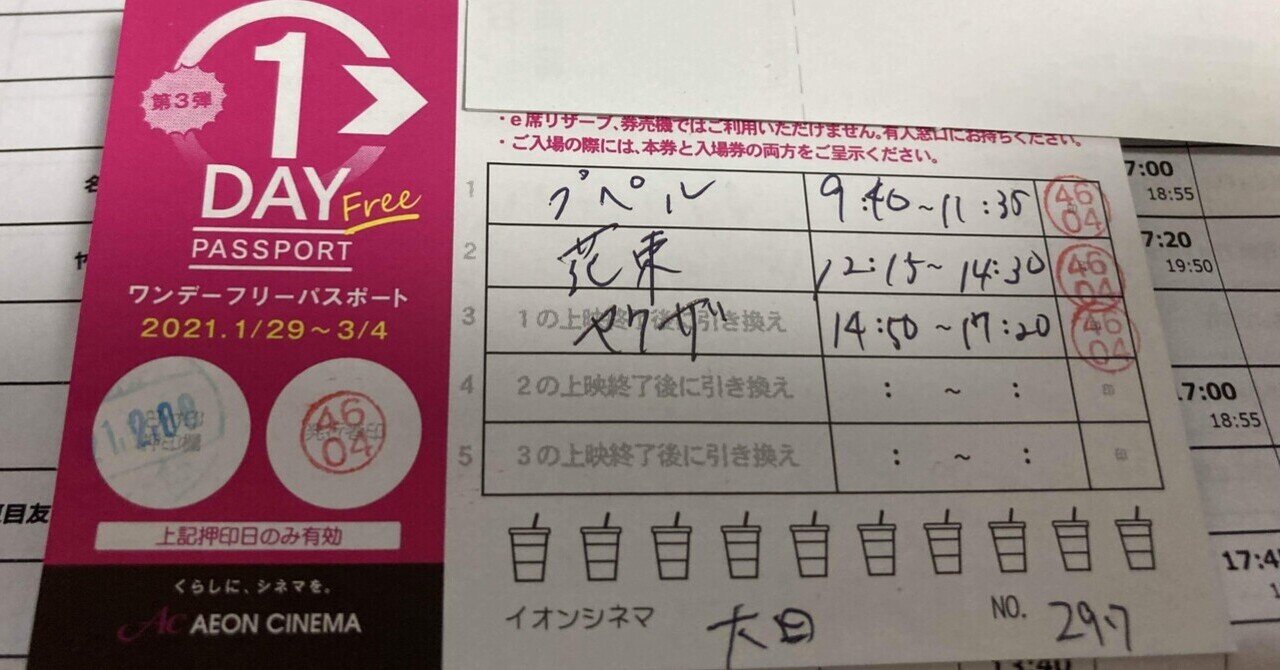 第3弾
1
DAY Free
PASSPORT
ワンデーフリーパスポート
2021.1/29～3/4
46
04
上記押印日のみ有効
くらしに、シネマを。
Ac AEON CINEMA
・e席リザーブ、券売機ではご利用いただけません。有人窓口にお持ちください。
・ご入場の際には、本券と入場券の両方をご呈示ください。
1 プペル 9:40～11:35 46 04
2 花束 12:15～14:30 46 04
3 1の上映終了後に引き換え ヤクザ 14:50～17:20 46 04
4 2の上映終了後に引き換え : ～ : 印
5 3の上映終了後に引き換え : ～ : 印
イオンシネマ 大日 NO. 297
7:00
18:55
7:20
19:50
17:00
18:55
17:45
13:40